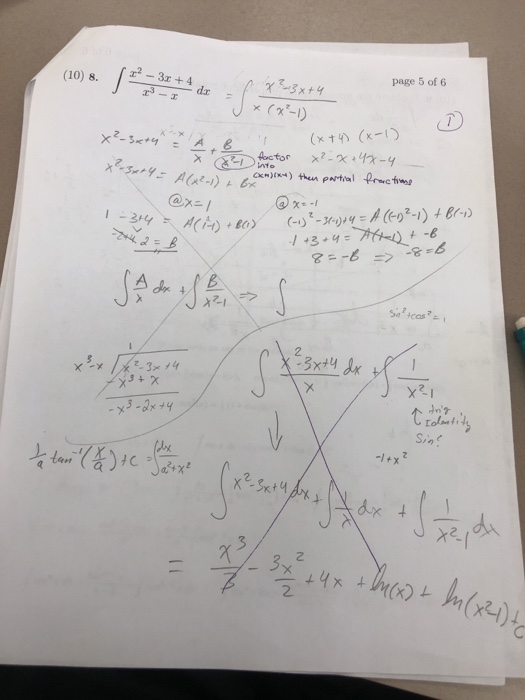 (10) 8. ∫ x² − 3x + 4 / x³ − x dx = ∫ x² − 3x + 4 / x (x² − 1)
page 5 of 6
1
x² − 3x + 4 = A/x + B/x²−1
(x+4) (x−1)
factor into
x² − x + 4x − 4
x² − 3x + 4 = A(x²−1) + Bx
then partial fractions
@ x = 1
@ x = −1
1 − 3 + 4 = A(1²−1) + B(1)
(−1)² − 3(−1) + 4 = A((−1)² − 1) + B(−1)
2 = B
1 + 3 + 4 = A(1−1) + −B
8 = −B ⇒ −8 = B
∫ A/x dx + ∫ B/x²−1 ⇒ ∫
sin² + cos² = 1
1
x³−x | x² − 3x + 4
−x³ + x
−x³ − 2x + 4
∫ x² − 3x + 4 / x dx + ∫ 1 / x² − 1
↑ trig Identity
Sin?
−1 + x²
1/a tan⁻¹(x/a) + C = ∫ dx / a² + x²
∫ x² − 3x + 4 dx + ∫ 1/x dx + ∫ 1 / x² − 1 dx
= x³/3 − 3x²/2 + 4x + ln(x) + ln(x²−1) + C